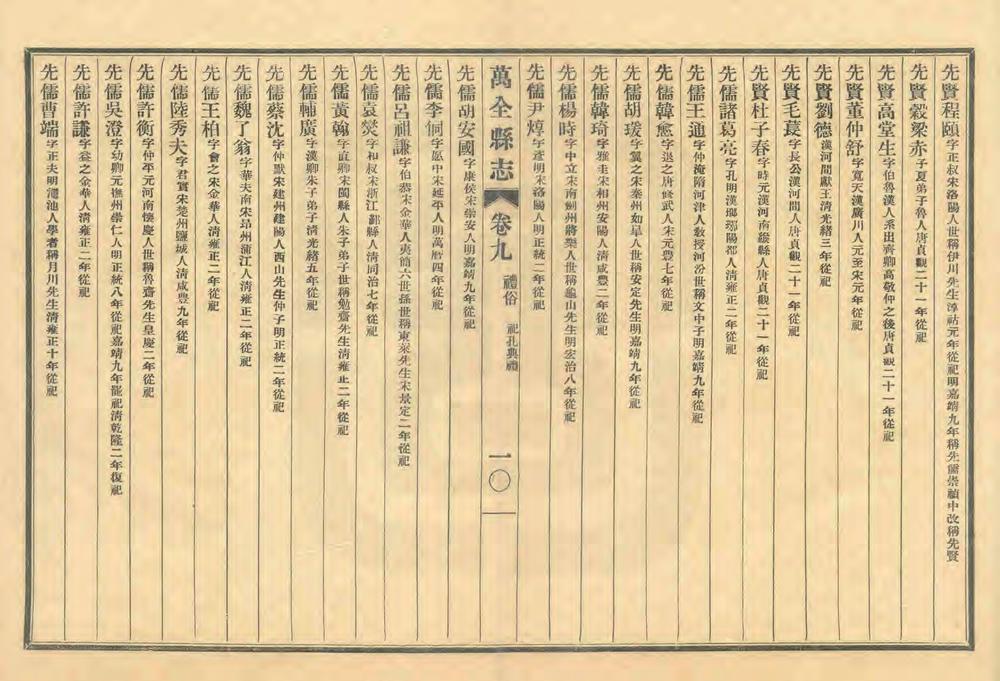 先賢程頤字正叔宋洛陽人世稱伊川先生淳祐元年從祀明嘉靖九年稱先儒崇禎中改稱先賢
先賢穀梁赤子夏弟子魯人唐貞觀二十一年從祀
先賢高堂生字伯魯漢人系出齊卿高敬仲之後唐貞觀二十一年從祀
先賢董仲舒字寬夫漢廣川人元至宋元年從祀
先賢劉德漢河間獻王清光緒三年從祀
先賢毛萇字長公漢河間人唐貞觀二十一年從祀
先賢杜子春字時元漢河南緱縣人唐貞觀二十一年從祀
先儒諸葛亮字孔明漢瑯琊陽都人清雍正二年從祀
先儒王通字仲淹隋河津人教授河汾世稱文中子明嘉靖九年從祀
先儒韓愈字退之唐修武人宋元豐七年從祀
先儒胡瑗字翼之宋泰州如皋人世稱安定先生明嘉靖九年從祀
先儒韓琦字雅圭宋相州安陽人清咸豐二年從祀
先儒楊時字中立宋南劍州將樂人世稱龜山先生明宏治八年從祀
先儒尹焞字彥明宋洛陽人明正統二年從祀
萬全縣志 卷九 禮俗 祀孔典禮 一〇
先儒胡安國字康侯宋崇安人明嘉靖九年從祀
先儒李侗字愿中宋延平人明萬曆四年從祀
先儒呂祖謙字伯恭宋金華人夷簡六世孫世稱東萊先生宋景定二年從祀
先儒袁燮字和叔宋浙江鄞縣人清同治七年從祀
先儒黃榦字直卿宋閩縣人朱子弟子世稱勉齋先生清雍正二年從祀
先儒輔廣字漢卿朱子弟子清光緒五年從祀
先儒蔡沈字仲默宋建州建陽人西山先生仲子明正統二年從祀
先儒魏了翁字華夫南宋邛州蒲江人清雍正二年從祀
先儒王柏字會之宋金華人清雍正二年從祀
先儒陸秀夫字君實宋楚州鹽城人清咸豐九年從祀
先儒許衡字仲平元河南懷慶人世稱魯齋先生皇慶二年從祀
先儒吳澄字幼卿元撫州崇仁人明正統八年從祀嘉靖九年罷祀清乾隆二年復祀
先儒許謙字益之金華人清雍正二年從祀
先儒曹端字正夫明澠池人學者稱月川先生清雍正十年從祀